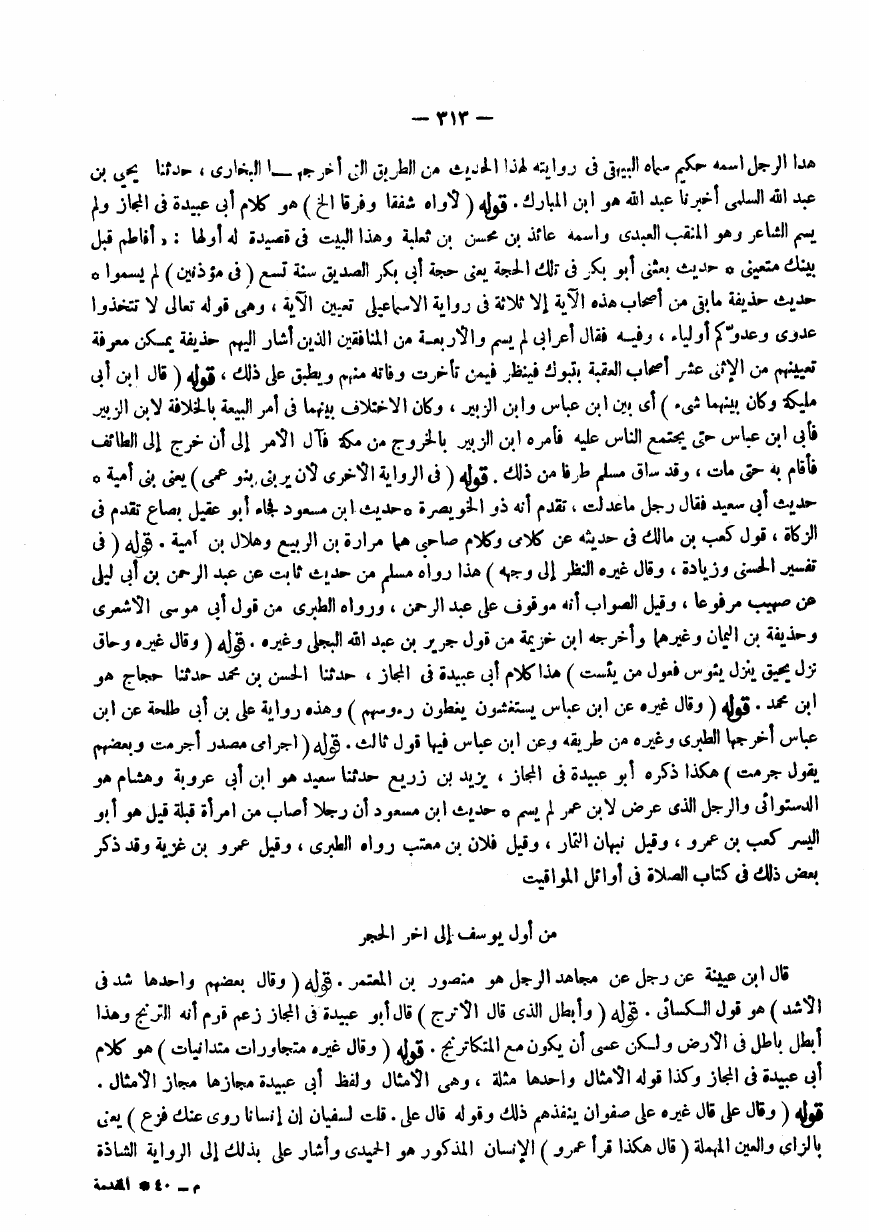 — ٣١٣ —
هذا الرجل اسمه حكيم سماه البيهقى فى روايته لهذا الحديث من الطريق التى أخرجها البخارى ، حدثنا يحيى بن
عبد الله السلمى أخبرنا عبد الله هو ابن المبارك . قوله ( لأواه شفقا وفرقا الخ ) هو كلام أبى عبيدة فى المجاز ولم
يسم الشاعر وهو المثقب العبدى واسمه عائذ بن محسن بن ثعلبة وهذا البيت فى قصيدة له أولها : , أفاطم قبل
بينك متعينى * حديث بعثنى أبو بكر فى تلك الحجة يعنى حجة أبى بكر الصديق سنة تسع ( فى مؤذنين ) لم يسموا *
حديث حذيفة مابقى من أصحاب هذه الآية إلا ثلاثة فى رواية الاسماعيلى تعيين الآية ، وهى قوله تعالى لا تتخذوا
عدوى وعدوّكم أولياء ، وفيه فقال أعرابى لم يسم والأربعة من المنافقين الذين أشار اليهم حذيفة يمكن معرفة
تعيينهم من الإثنى عشر أصحاب العقبة بتبوك فينظر فيمن تأخرت وفاته منهم ويطبق على ذلك ، قوله ( قال ابن أبى
مليكة وكان بينهما شىء ) أى بين ابن عباس وابن الزبير ، وكان الاختلاف بينهما فى أمر البيعة بالخلافة لابن الزبير
فأبى ابن عباس حتى يجتمع الناس عليه فأمره ابن الزبير بالخروج من مكة فآل الأمر إلى أن خرج إلى الطائف
فأقام به حتى مات ، وقد ساق مسلم طرفا من ذلك . قوله ( فى الرواية الأخرى لأن يربنى بنو عمى ) يعنى بنى أمية *
حديث أبى سعيد فقال رجل ماعدلت ، تقدم أنه ذو الخويصرة * حديث ابن مسعود فجاء أبو عقيل بصاع تقدم فى
الزكاة ، قول كعب بن مالك فى حديثه عن كلامى وكلام صاحبى هما مرارة بن الربيع وهلال بن أمية . قوله ( فى
تفسير الحسنى وزيادة ، وقال غيره النظر إلى وجهه ) هذا رواه مسلم من حديث ثابت عن عبد الرحمن بن أبى ليلى
عن صهيب مرفوعا ، وقيل الصواب أنه موقوف على عبد الرحمن ، ورواه الطبرى من قول أبى موسى الأشعرى
وحذيفة بن اليمان وغيرهما وأخرجه ابن خزيمة من قول جرير بن عبد الله البجلى وغيره . قوله ( وقال غيره وحاق
نزل يحيق ينزل يئوس فعول من يئست ) هذا كلام أبى عبيدة فى المجاز ، حدثنا الحسن بن محمد حدثنا حجاج هو
ابن محمد . قوله ( وقال غيره عن ابن عباس يستغشون يغطون رءوسهم ) وهذه رواية على بن أبى طلحة عن ابن
عباس أخرجها الطبرى وغيره من طريقه وعن ابن عباس فيها قول ثالث . قوله ( اجرامى مصدر أجرمت وبعضهم
يقول جرمت ) هكذا ذكره أبو عبيدة فى المجاز ، يزيد بن زريع حدثنا سعيد هو ابن أبى عروبة وهشام هو
الدستوائى والرجل الذى عرض لابن عمر لم يسم * حديث ابن مسعود أن رجلا أصاب من امرأة قبلة قيل هو أبو
اليسر كعب بن عمرو ، وقيل نبهان التمار ، وقيل فلان بن معتب رواه الطبرى ، وقيل عمرو بن غزية وقد ذكر
بعض ذلك فى كتاب الصلاة فى أوائل المواقيت
من أول يوسف إلى اخر الحجر
قال ابن عيينة عن رجل عن مجاهد الرجل هو منصور بن المعتمر . قوله ( وقال بعضهم واحدها شد فى
الأشد ) هو قول الكسائى . قوله ( وأبطل الذى قال الأترج ) قال أبو عبيدة فى المجاز زعم قوم أنه الترنج وهذا
أبطل باطل فى الأرض ولكن عسى أن يكون مع المتكا ترنج . قوله ( وقال غيره متجاورات متدانيات ) هو كلام
أبى عبيدة فى المجاز وكذا قوله الأمثال واحدها مثلة ، وهى الأمثال ولفظ أبى عبيدة مجازها مجاز الأمثال .
قوله ( وقال على قال غيره على صفوان ينفذهم ذلك وقوله قال على . قلت لسفيان إن إنسانا روى عنك فزع ) يعنى
بالزاى والعين المهملة ( قال هكذا قرأ عمرو ) الإنسان المذكور هو الحميدى وأشار على بذلك إلى الرواية الشاذة
م — ٤٠ * المقدمة